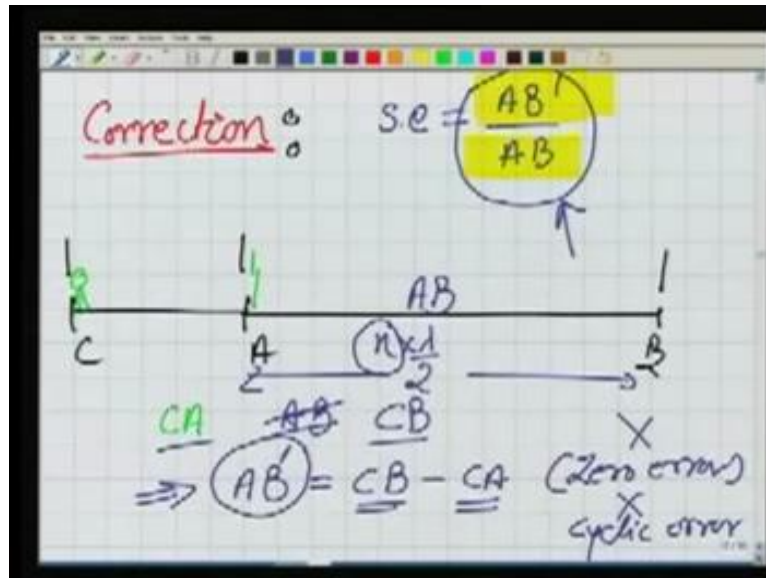 Correction :
S.e = AB' / AB
AB
C A n × λ/2 B
CA AB CB
⇒ AB' = CB - CA
× (Zero error)
× cyclic error